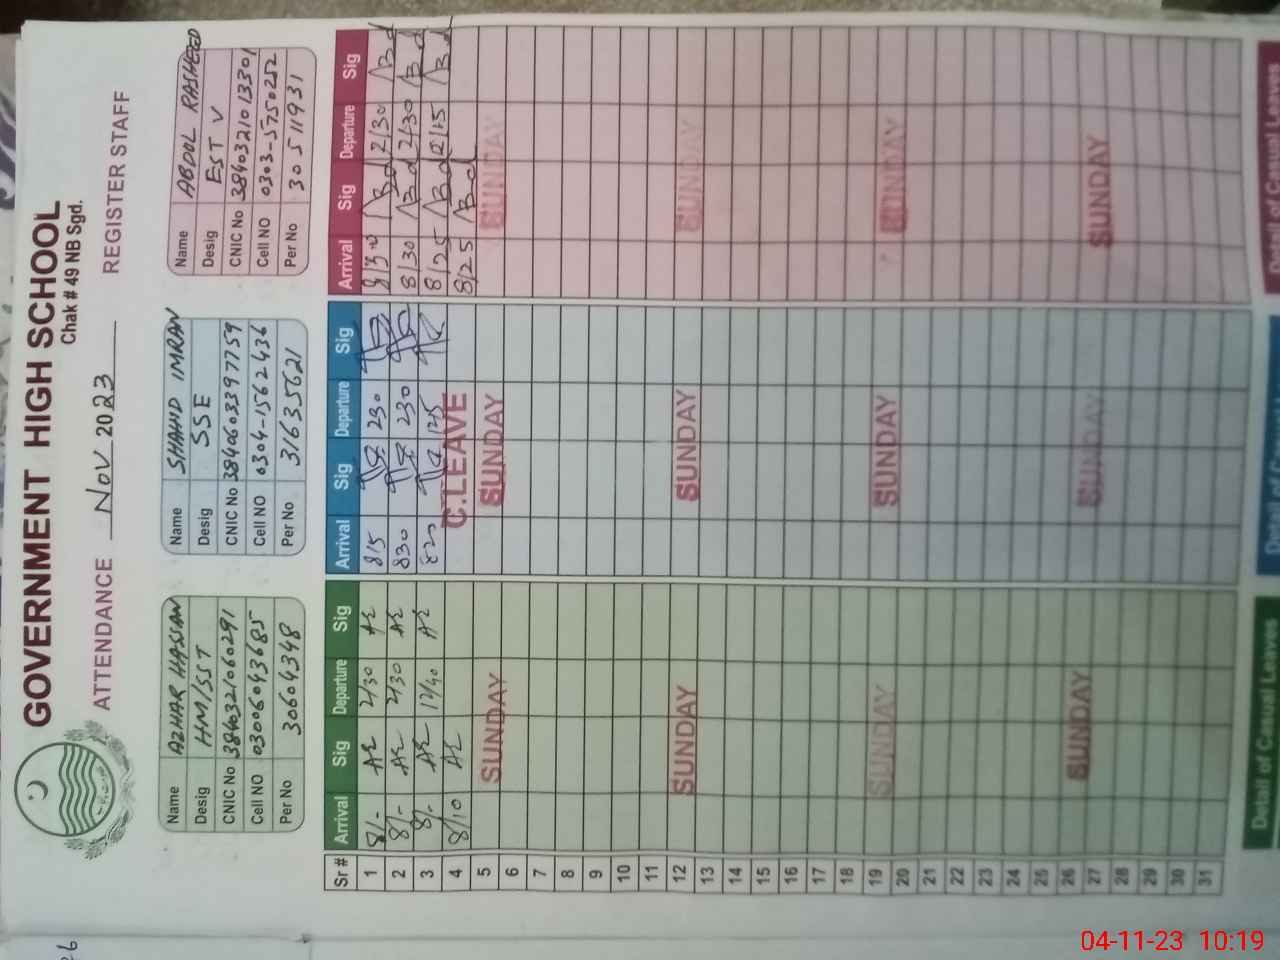 GOVERNMENT HIGH SCHOOL
Chak # 49 NB Sgd.
ATTENDANCE Nov 2023 REGISTER STAFF
Name AZHAR HASSAN
Desig HM/SST
CNIC No 3840321060291
Cell NO 03006043685
Per No 30604348
Name SHAHID IMRAN
Desig SSE
CNIC No 3840603397759
Cell NO 0304-1562436
Per No 31635621
Name ABDUL RASHEED
Desig EST V
CNIC No 3840321013301
Cell NO 0303-5750252
Per No 30511931
Sr # Arrival Sig Departure Sig Arrival Sig Departure Sig Arrival Sig Departure Sig
1 8/- 2/30 815 230 8/30 2/30
2 8/- 2/30 830 230 8/30 2/30
3 8/- 12/40 820 125 8/25 12/15
4 8/10 C.LEAVE 8/25
5 SUNDAY SUNDAY SUNDAY
6
7
8
9
10
11
12 SUNDAY SUNDAY SUNDAY
13
14
15
16
17
18
19 SUNDAY SUNDAY SUNDAY
20
21
22
23
24
25
26 SUNDAY SUNDAY SUNDAY
27
28
29
30
31
Detail of Casual Leaves Detail of Casual Leaves Detail of Casual Leaves
04-11-23 10:19